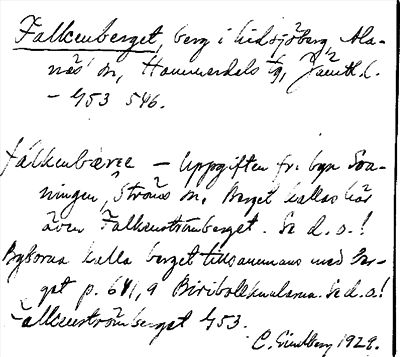 Falkenberget, berg i Lidsjöberg, Ala-
näs sn, Hammerdals tg, Jämtl. l.
- G53 546.
fálkenbærɛ — Uppgiften fr. byn Svaningen, Ströms sn. Berget kallas här
även Falkenströmberget. Se d. o.!
Byborna kalla berget tillsammans med Ber-
get p. 641,9 Biribolkkmulama. Se d.o.!
Falkenströmberget G53.
C. Lindberg 1929.